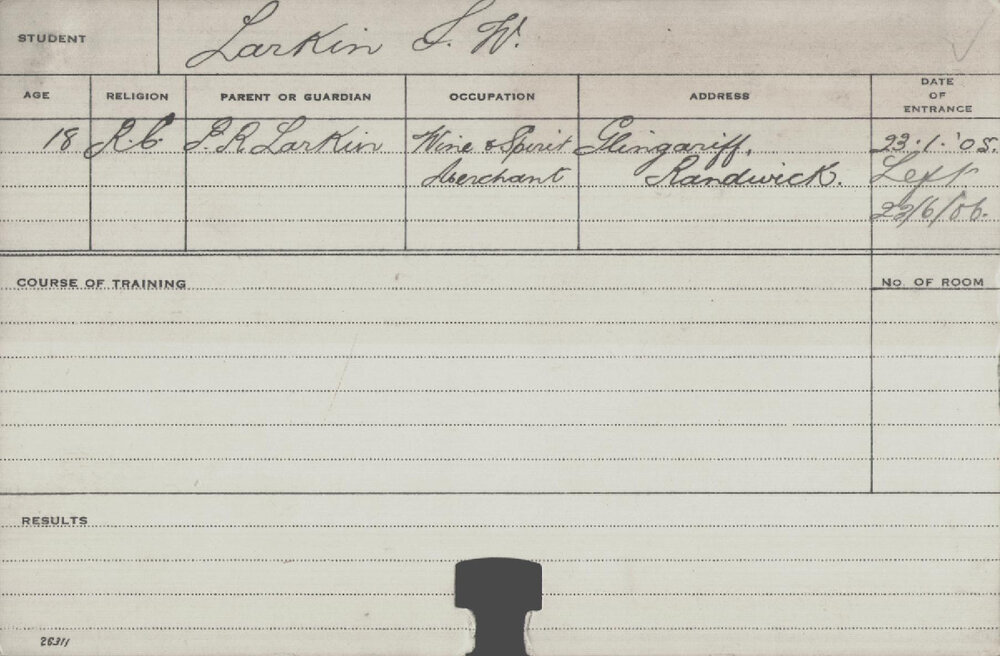 STUDENT Larkin S. W.
AGE RELIGION PARENT OR GUARDIAN OCCUPATION ADDRESS DATE OF ENTRANCE
18 R.C. P. R Larkin Wine & Spirit Glingariff, 23.1.'05.
Merchant Randwick. Left
22/6/06.
COURSE OF TRAINING No. OF ROOM
RESULTS
26311